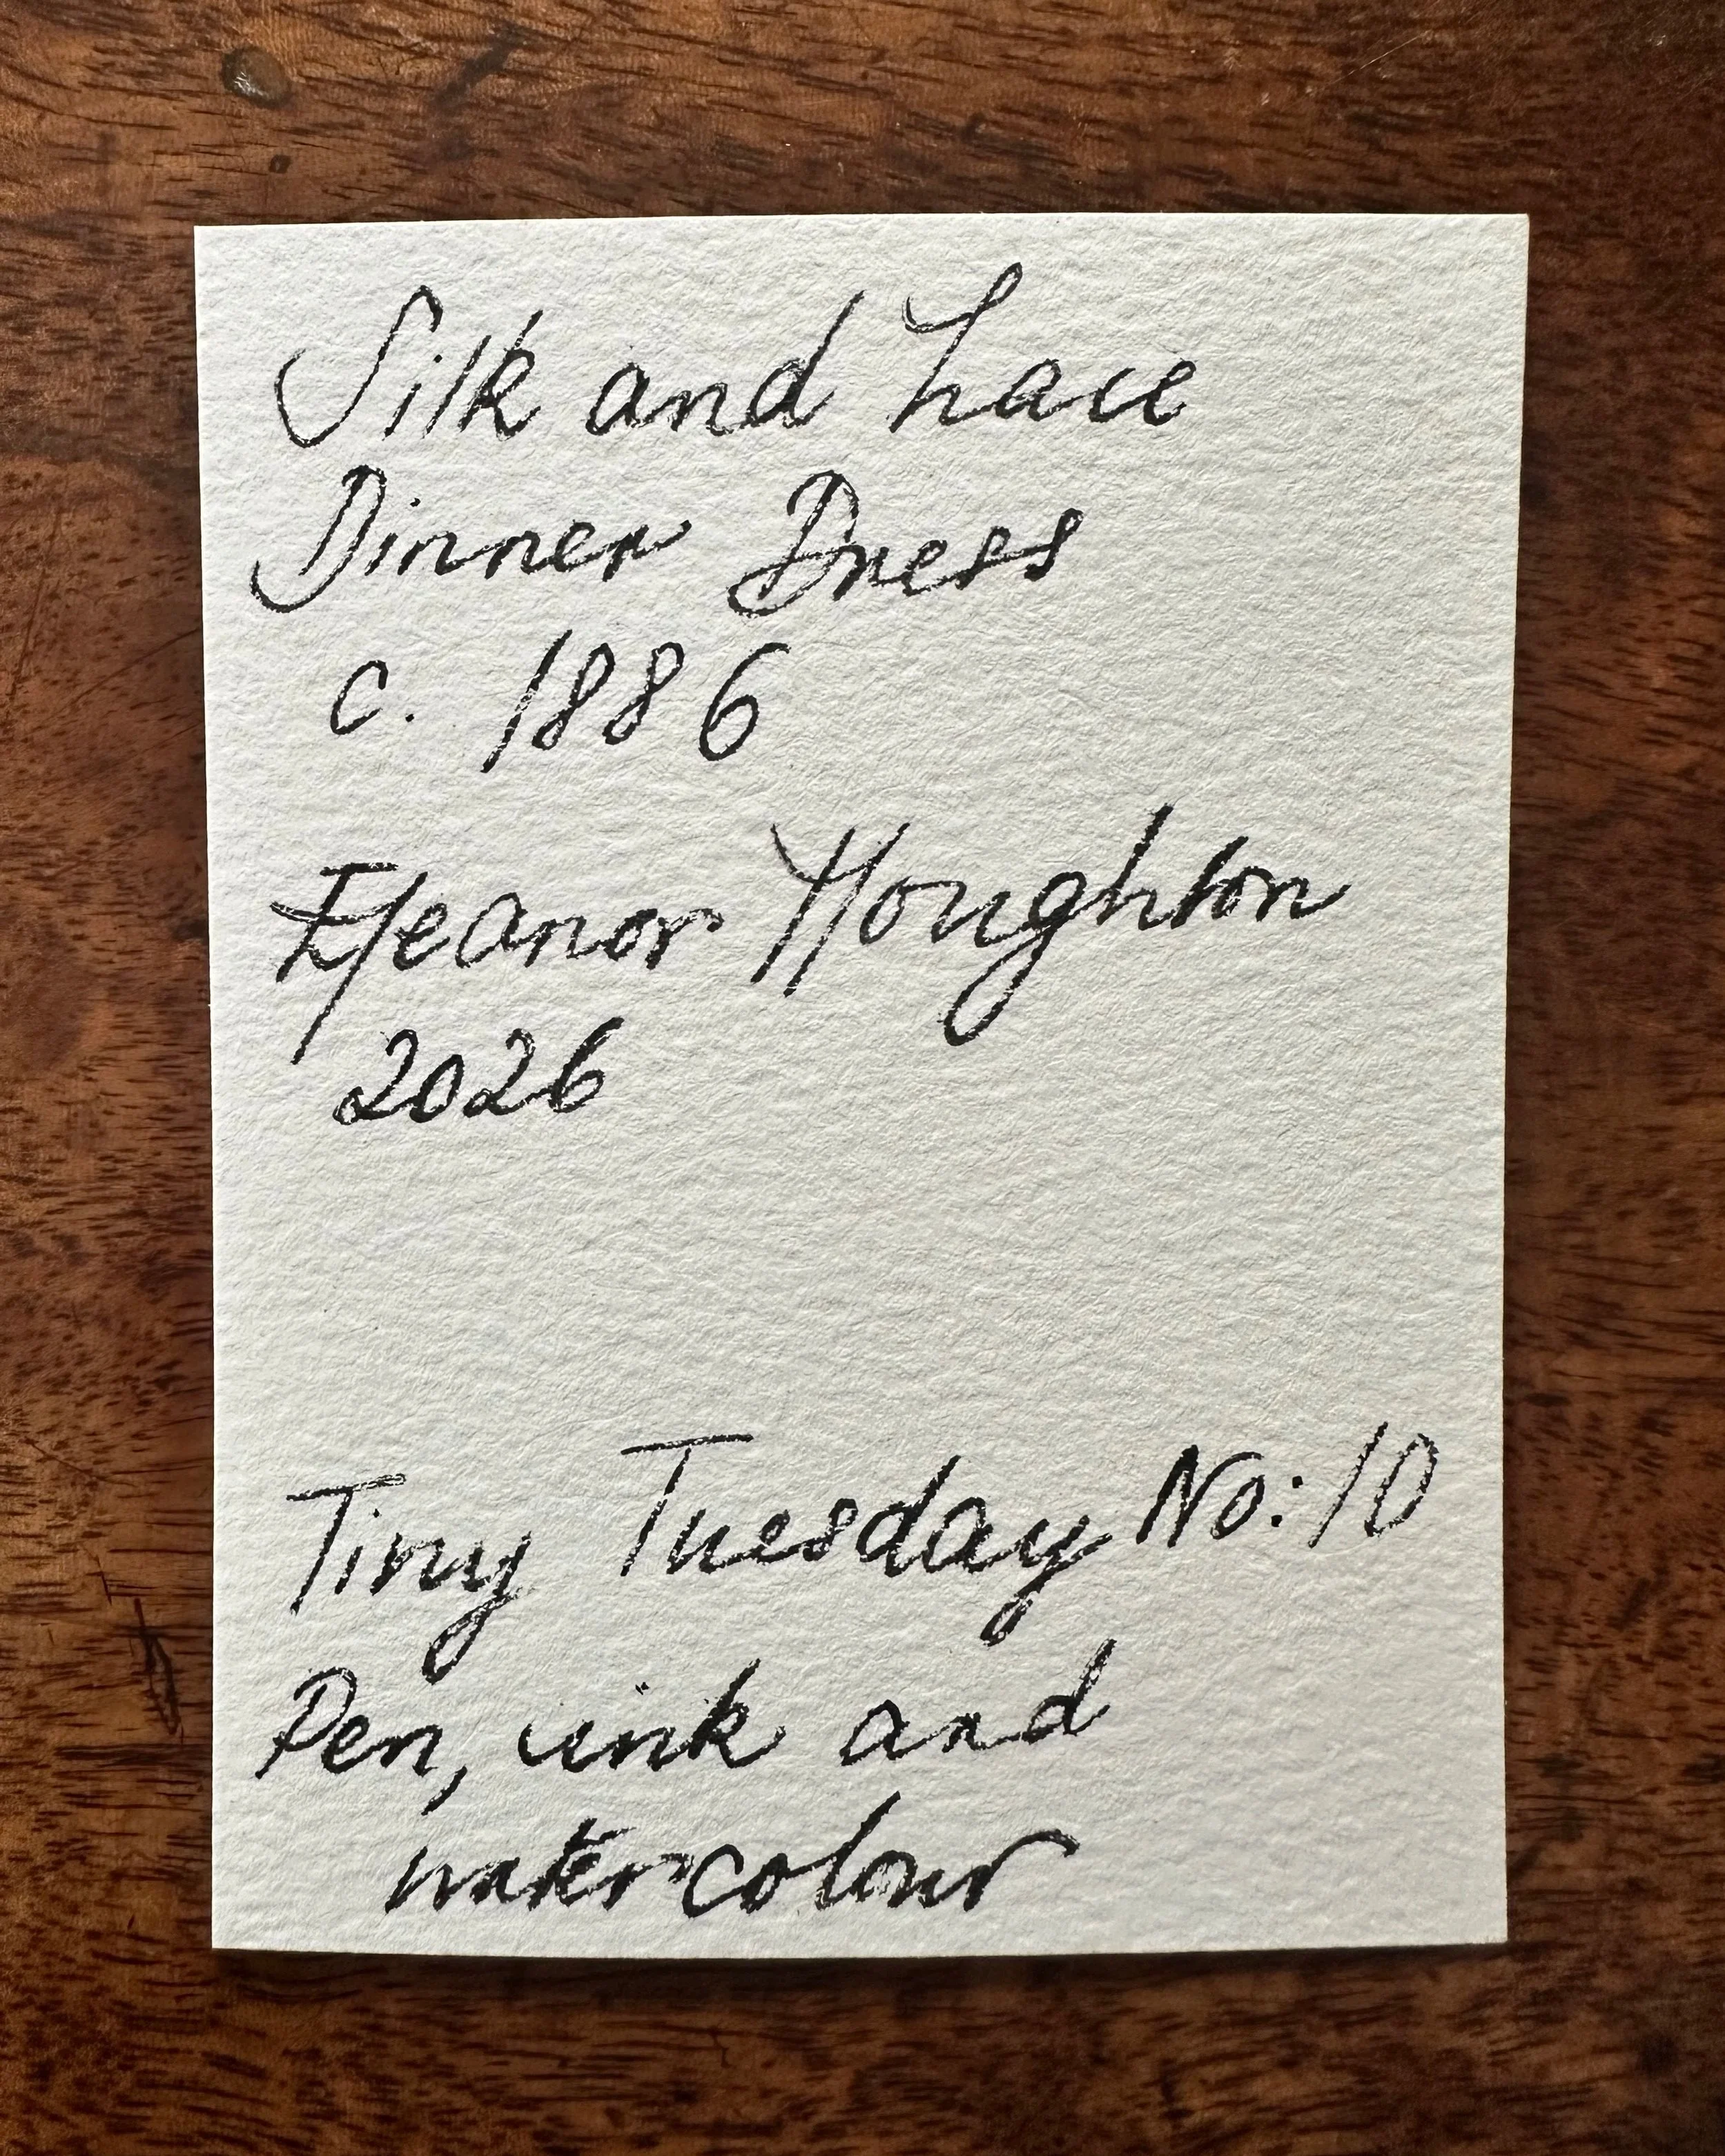 Silk and Lace
Dinner Dress
c. 1886
Eleanor Houghton
2026
Tiny Tuesday No: 10
Pen, ink and
watercolour